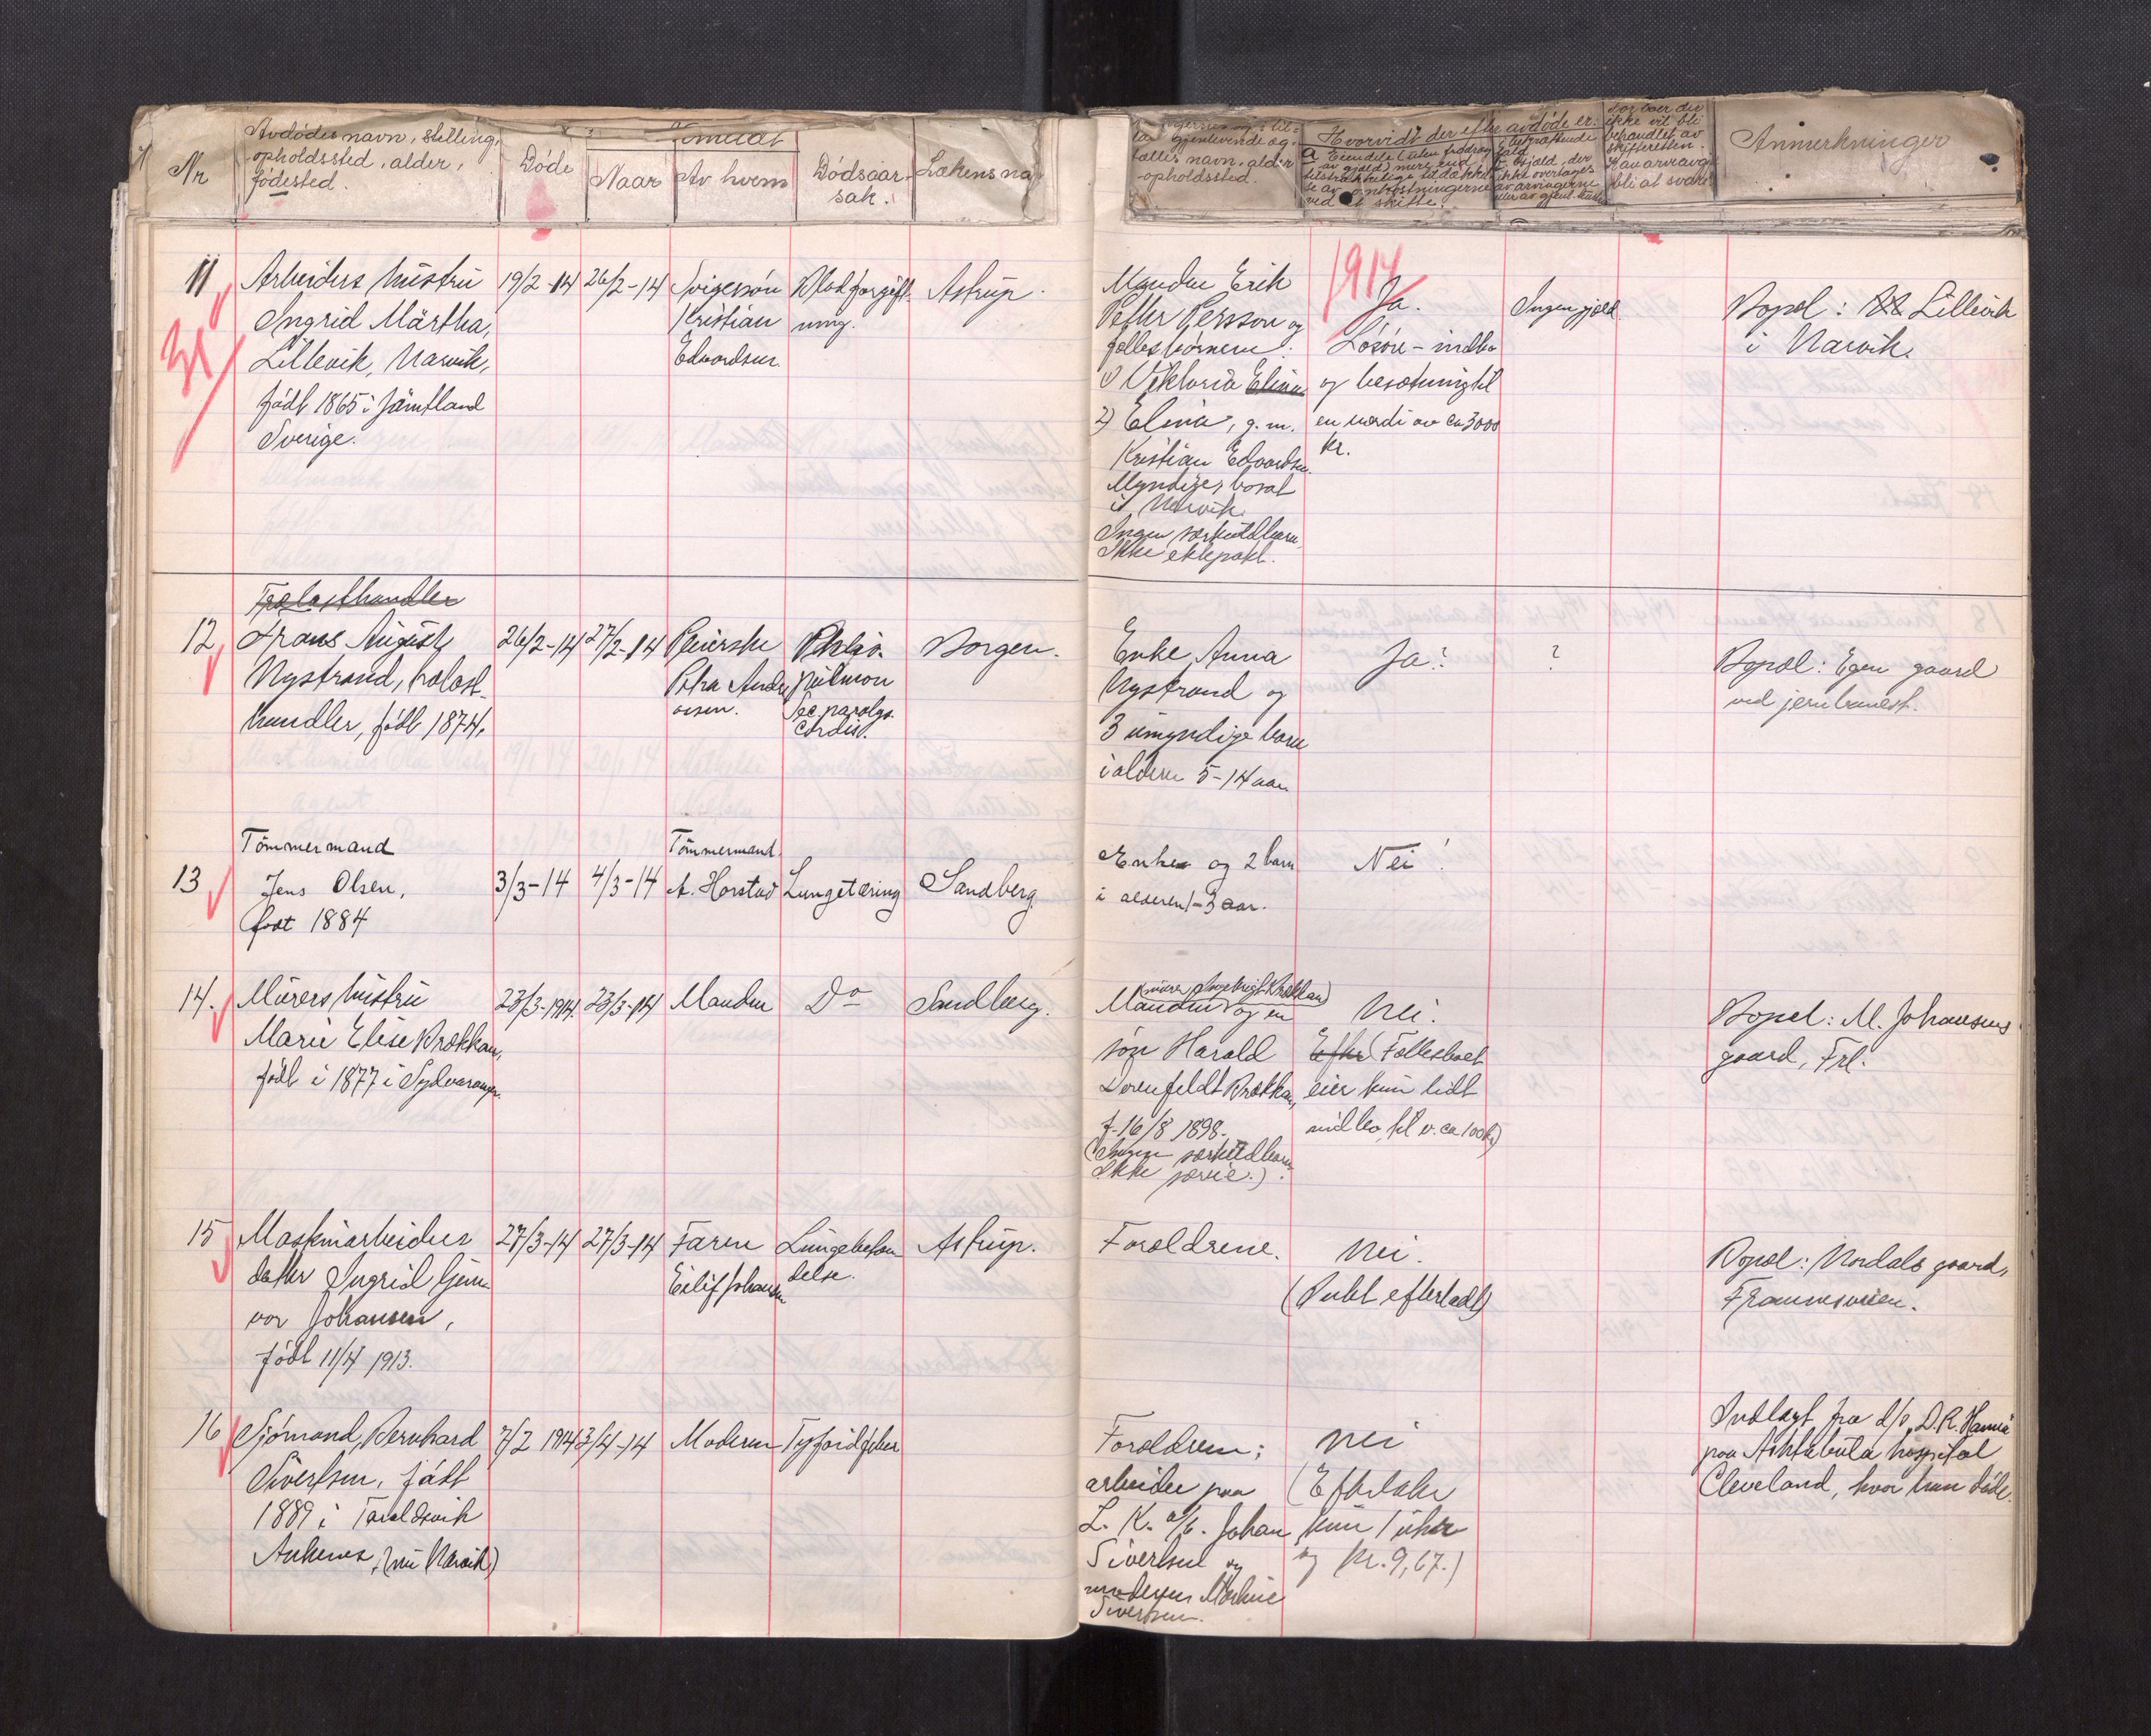 Nr
Avdødes navn, stilling,
opholdssted, alder,
fødested.
Døde
Anmeldt
Naar
Av hvem
Dødsaar-
sak.
Lækens na
gjenlevende æg-
tælles navn, alder
-opholdssted.
Hvorvidt der efter avdøde er:
a Eiendele (uten fradrag
av gjæld) mere end
tilstrækkelige til dække
se av omkostningerne
ved et skifte.
gjæld, der
ikke overtages
av arvingerne
ikke vil bli
behandlet av
skifteretten.
bli at svare
Anmerkninger
1914
11
Arbeiders hustru
Ingrid Märtha,
Lillevik, Narvik,
født 1865 i Jämtland
Sverige.
19/2-14
26/2-14
Svigersøn
Kristian
Edvardsen.
Blodforgift-
ning.
Astrup.
Manden Erik
Petter Persson og
fællesbørnene:
1) Viktoria Elina
2) Elina, g. m.
Kristian Edvardsen.
Myndige, bosat
i Narvik.
Ingen særkuldbarn.
Ikke ektepakt.
Ja.
Løsøre - indbo
og besætning til
en værdi av ca 3000
kr.
Ingen gjæld.
Bopæl: Lillevik
i Narvik.
12
Trælasthandler
Frans August
Nystrand, trælast-
handler, født 1874.
26/2-14
27/2-14
Pleierske
Petra Andre
asen.
Phtisis.
pulmon
Sec. paralys.
Cordis.
Borgen.
Enke Anna
Nystrand og
3 umyndige barn
i alderen 5-14 aar.
Ja?
?
Bopæl: Egen gaard
ved jernbanest.
13
Tømmermand
Jens Olsen,
født 1884
3/3-14
4/3-14
Tømmermand
A. Horstad
Lungetæring
Sandberg.
Enke og 2 barn
i alderen 1-3 aar.
Nei!
14.
Murers hustru
Marie Elise Brækkan,
født i 1877 i Sydvaranger.
23/3-1914.
23/3-14
Manden
Do
Sandberg.
Manden og en
søn Harald
Dorenfeldt Brækkan,
f. 16/8 1898.
(Ingen særkuldbarn
Ikke særeie.).
Nei.
Efter (Fællesboet
eier kun lidt
indbo til v. ca 100 kr)
Bopæl: M. Johansens
gaard, Frl.
15
Maskinarbeiders
datter Ingrid Gun-
vor Johansen,
født 11/4 1913.
27/3-14
27/3-14
Faren
Eilif Johansen
Lungebetæn
delse.
Astrup.
Forældrene.
Nei.
(Intet efterladt)
Bopæl: Nordals gaard,
Framnesveien.
16
Sjømand Bernhard
Sivertsen, født
1889 i Taraldsvik
Ankenes, (nu Narvik)
7/2 1914
3/4-14
Moderen
Tyfoidfeber
Forældrene;
arbeider paa
L. K. a/b. Johan
Sivertsen og
moderen
Sivertsen.
Nei
(Efterlater
kun 1 uhr
og kr. 9,67.)
Indlagt fra d/s „D. R. Hanna"
paa Ashtabula hospital
Cleveland, hvor han døde.